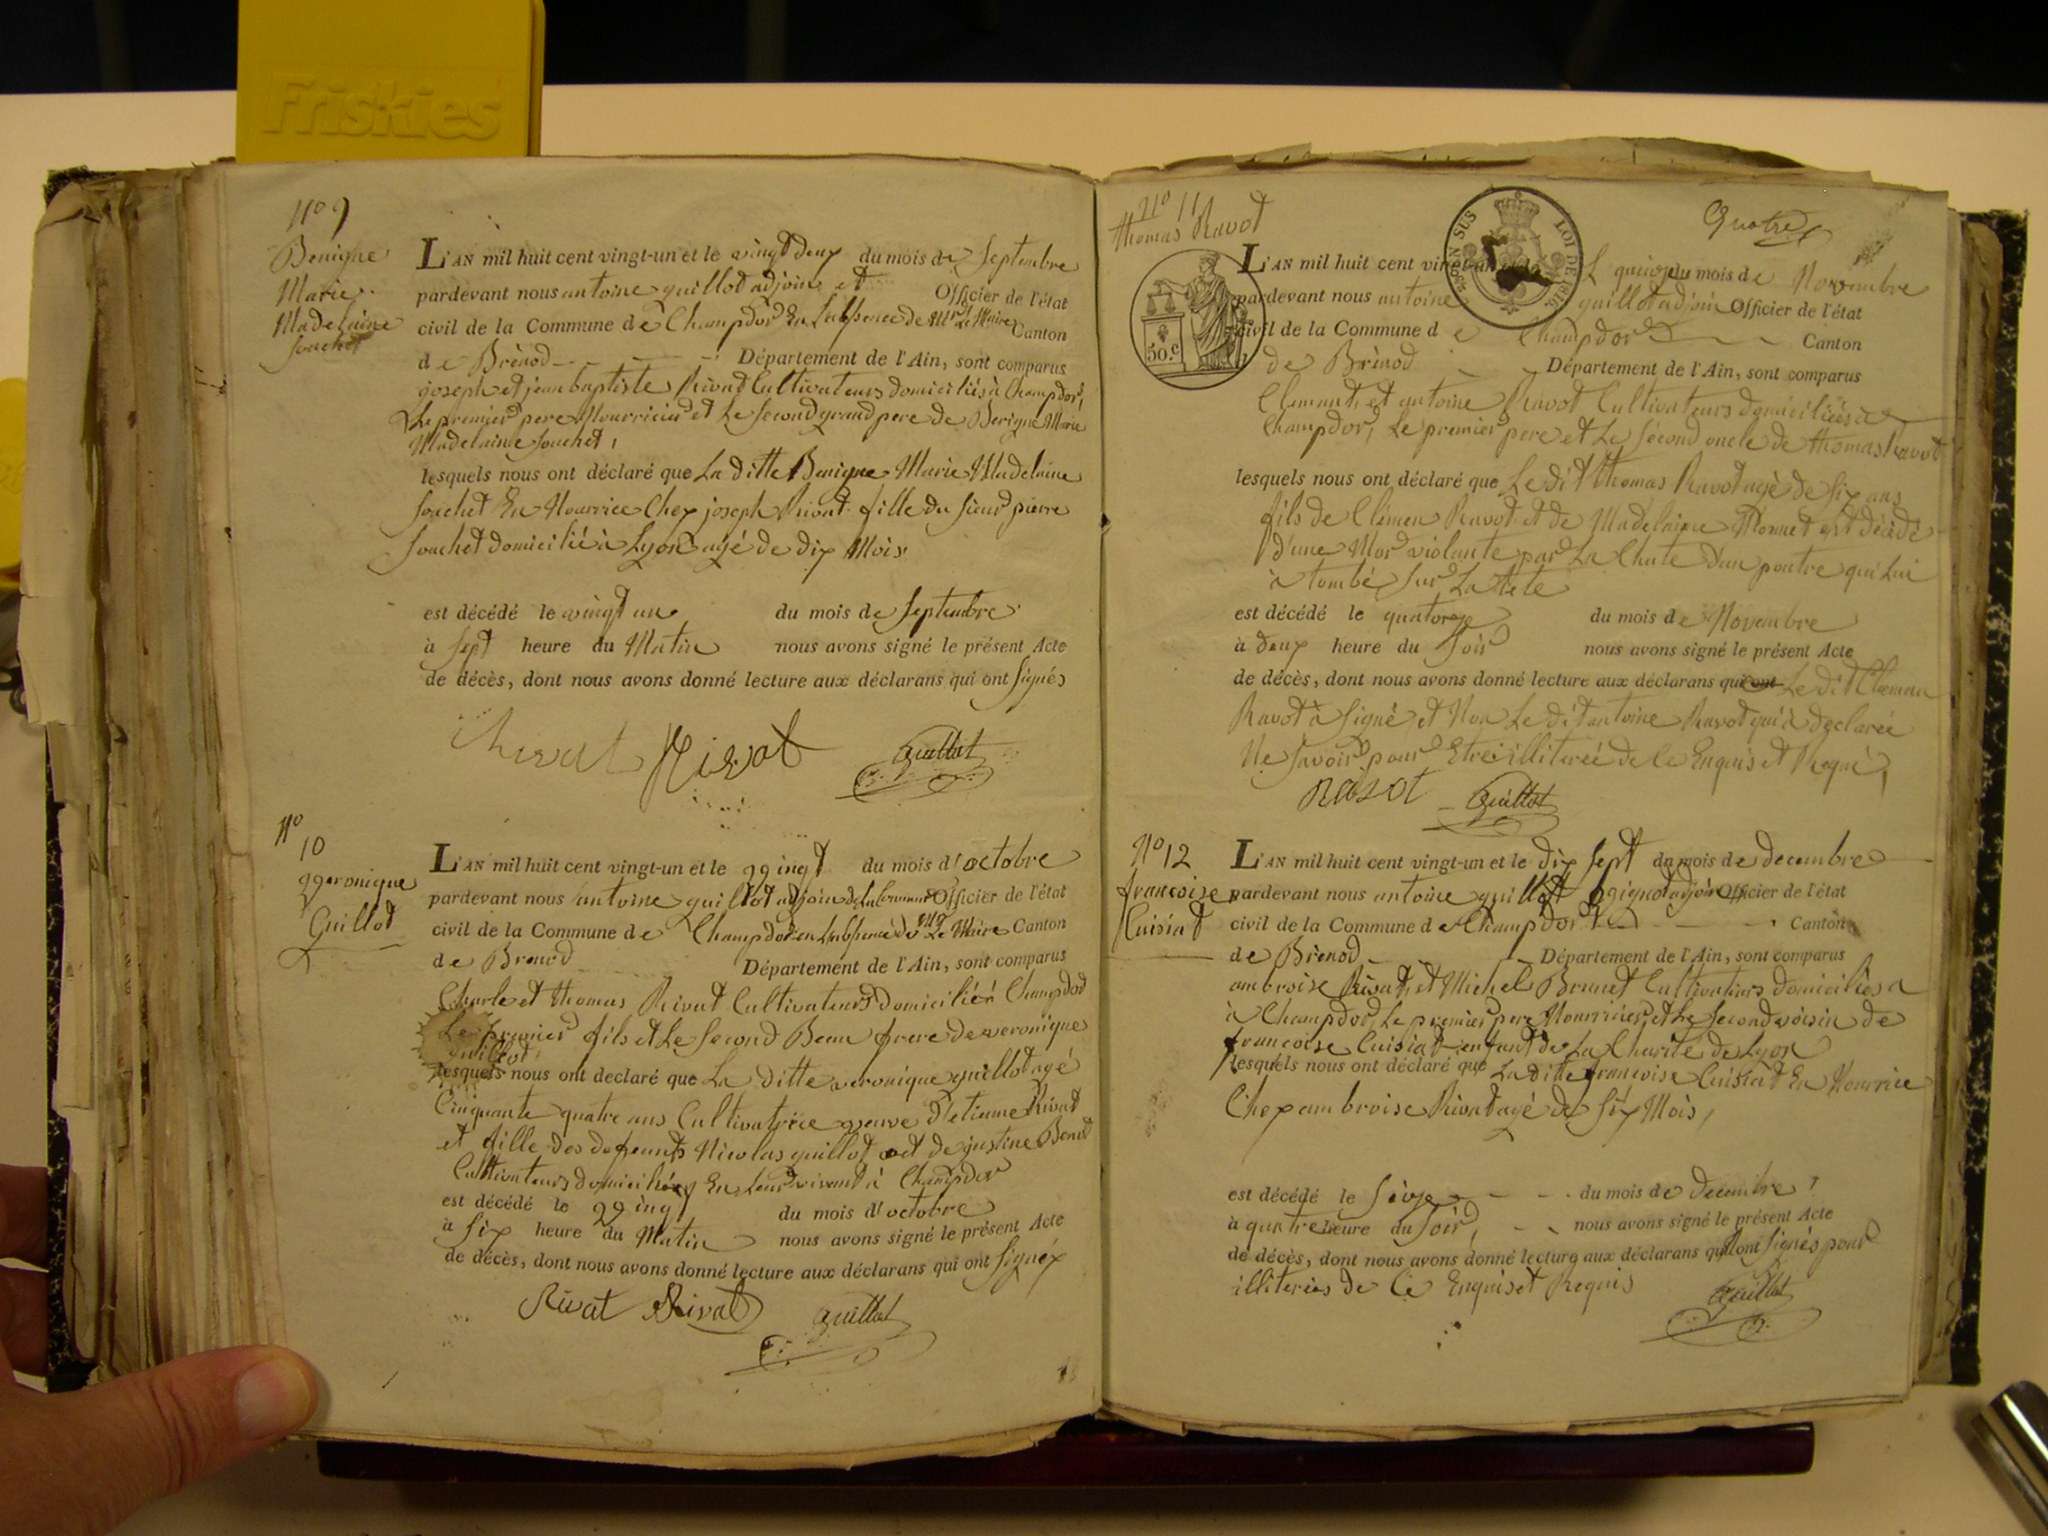 Friskies
N° 9
Benigne
Marie
Madelaine
Souchet
L'AN mil huit cent vingt-un et le vingt deux du mois de Septembre
pardevant nous antoine guillot adjoint et Officier de l'état
civil de la Commune de Champdor En Labsence de Mr Le Maire Canton
de Brénod Département de l'Ain, sont comparus
joseph et jean baptiste Rivat Cultivateurs domiciliés à Champdor,
Le premier pere Nourricier et Le Second grand pere de Benigne Marie
Madelaine Souchet,
lesquels nous ont déclaré que La ditte Benigne Marie Madelaine
Souchet En Nourrice Chez joseph Rivat fille du Sieur pierre
Souchet domicilié à Lyon agé de dix Mois
est décédé le vingt un du mois de Septembre
à Sept heure du Matin nous avons signé le présent Acte
de décès, dont nous avons donné lecture aux déclarans qui ont Signés
Rivat Rivat Guillot
N°
10
Veronique
Guillot
L'AN mil huit cent vingt-un et le vingt du mois d'octobre
pardevant nous antoine guillot adjoin de la Commune Officier de l'état
civil de la Commune de Champdor en Labsence de Mr Le Maire Canton
de Brenod Département de l'Ain, sont comparus
Charle et thomas Rivat Cultivateurs domicilié à Champdor
Le premier fils et Le Second Beau frere de veronique
guillot,
lesquels nous ont declaré que La ditte veronique guillot agé
Cinquante quatre ans Cultivatrice veuve d'etienne Rivat
et fille des defeunts Nicolas guillot et de justine Benet
Cultivateurs domiciliés En Leur vivant à Champdor
est décédé le vingt du mois d'octobre
à Six heure du Matin nous avons signé le présent Acte
de décès, dont nous avons donné lecture aux déclarans qui ont Signéz
Rivat Rivat Guillot
N° 11
thomas Ravot
Quatre
SUS LOI DE 1816
50.c
L'AN mil huit cent vingt-un et Le quinze du mois de Novembre
pardevant nous antoine guillot adjoin Officier de l'état
civil de la Commune de Champdor Canton
de Brénod Département de l'Ain, sont comparus
Clement et antoine Ravot Cultivateurs domiciliés à
Champdor, Le premier pere et Le Second oncle de thomas Ravot
lesquels nous ont déclaré que Le dit thomas Ravot agé de Six ans
fils de Clémen Ravot et de Madelaine Monnet est décédé
d'une Mor violante par La Chute d'un poutre qui Lui
à tombé Sur La tete
est décédé le quatorze du mois de Novembre
à deux heure du Soir nous avons signé le présent Acte
de décès, dont nous avons donné lecture aux déclarans qui ont Le dit Clemen
Ravot à Signé et Non Le dit antoine Ravot qui à declarée
Ne Savoir pour Etre illiterée de Ce Enquis et Requi,
Ravot Guillot
N° 12
françoise
Cuisiat
L'AN mil huit cent vingt-un et le dix Sept du mois de decembre
pardevant nous antoine guillot adjoin Officier de l'état
civil de la Commune de Champdor Canton
de Brénod Département de l'Ain, sont comparus
ambroise Rivat, et Michel Brunet Cultivateurs domiciliés a
à Champdor, Le premier pere Nourricier, et Le Second voisin de
françoise Cuisiat enfant de La Charité de Lyon
lesquels nous ont déclaré que La ditte françoise Cuisiat En Nourrice
Chez ambroise Rivat agé de Six Mois,
est décédé le Seize du mois de decembre
à quatre heure du Soir, nous avons signé le présent Acte
de décès, dont nous avons donné lecture aux déclarans qui ont Signés pour
illiteriés de Ce Enquis et Requis
Guillot